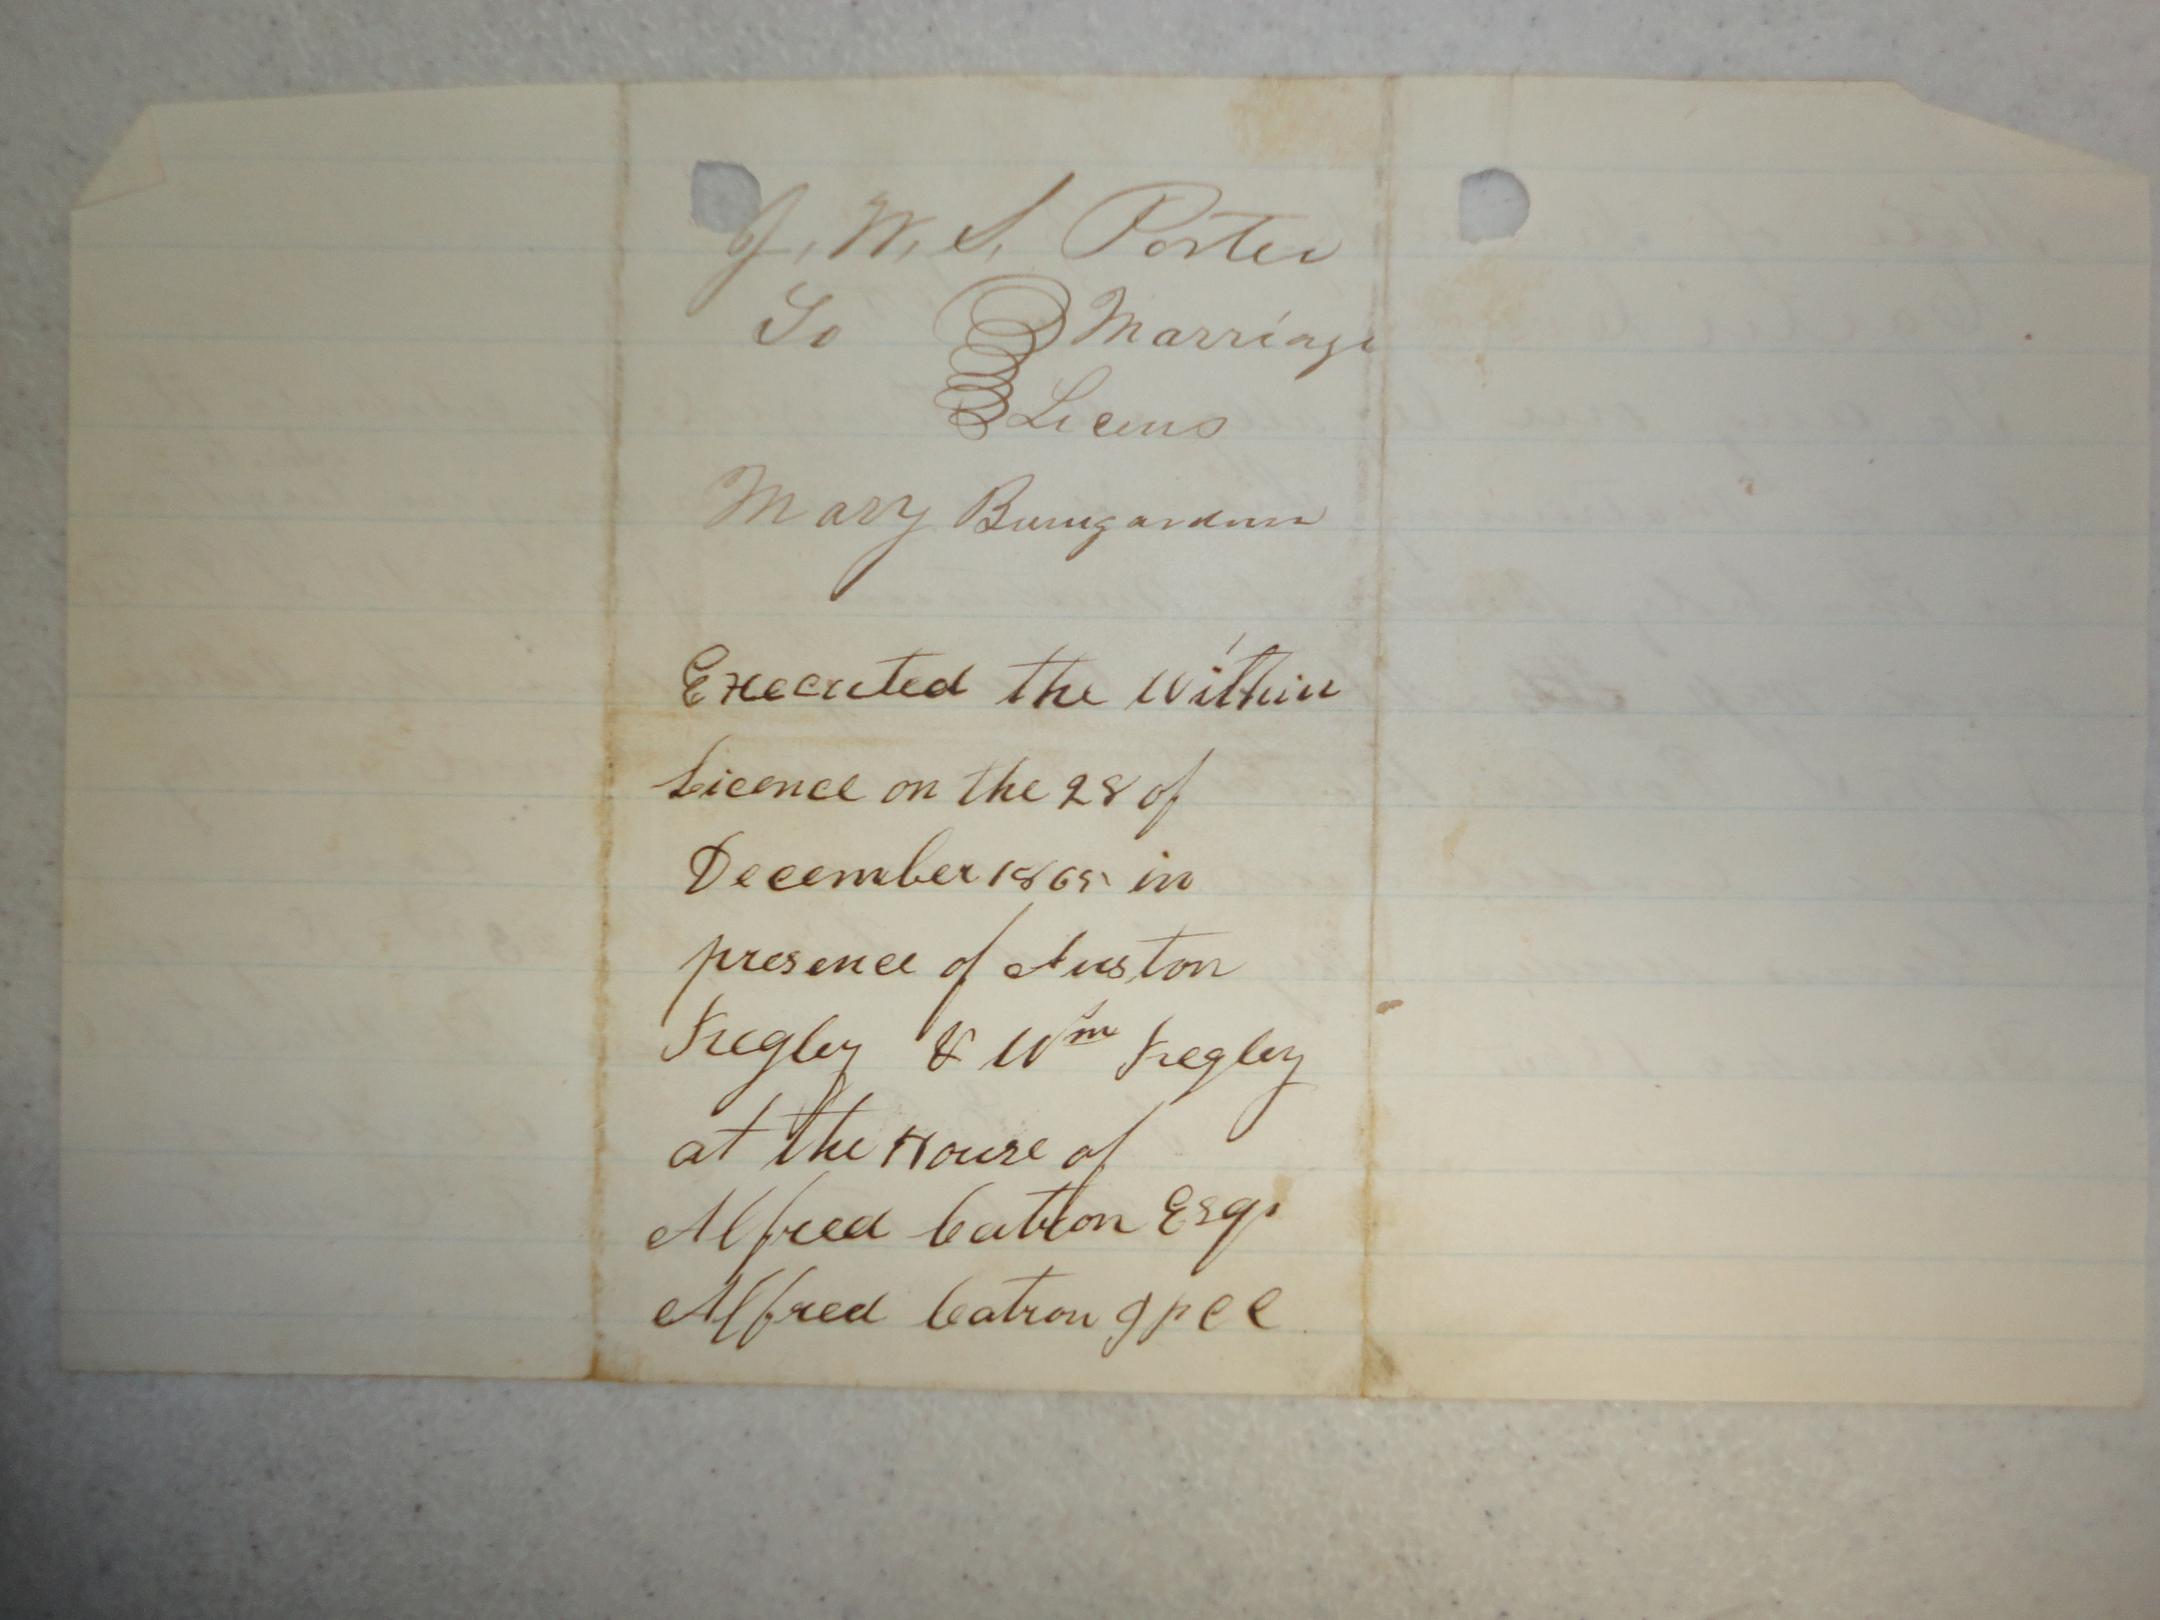 J. W. S. Porter
To Marriage
Licens
Mary Bumgardner
Executed the Within
Licence on the 28 of
December 1865 in
presence of Auston
Fregley & Wm Fregley
at the House of
Alfred Catron Esqr
Alfred Catron JPCC